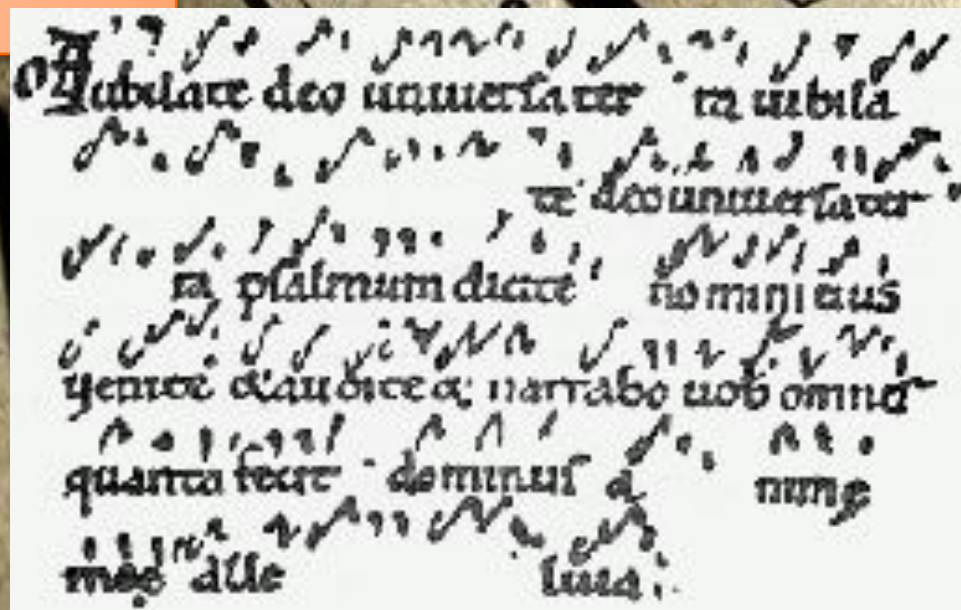 Iubilate deo uniuersa ter ra iubila
te deo uniuersa ter
ra psalmum dicite nomini eius
uenite & audite & narrabo uob omnia
quanta fecit dominus a nimę
meę alle luia